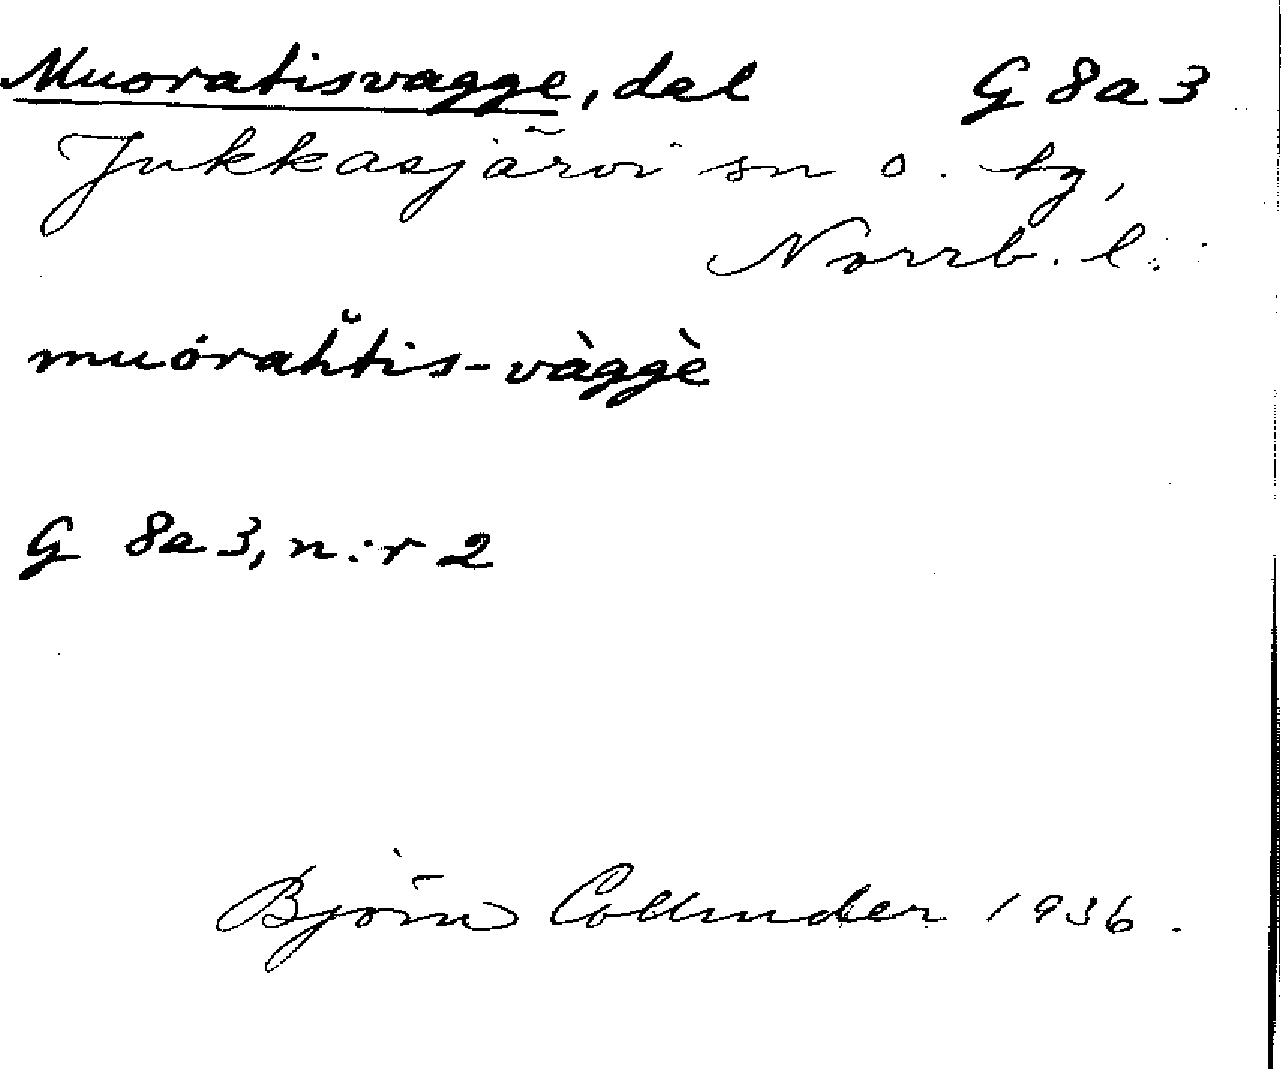 Muoratisvagge, dal G 8a 3
Jukkasjärvi sn o. tg,
Norrb. l.
muȯrahtis-vàggè
G 8a 3, n:r 2
Björn Collinder 1936.